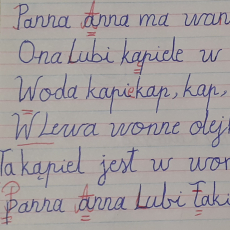 Panna anna ma wan
Ona Lubi kąpiele w
Woda kapiekap, kap,
W Lewa wonne olejk
Ta kąpiel jest w wor
Panna anna Lubi Taki